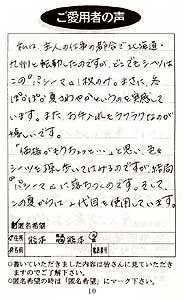 ご愛用者の声
私は、主人の仕事の都合で北海道・
九州と転勤したのですが、どこでもシーツは
この"パシーマ"1枚のみ。まさに、冬
ぽかぽか夏さわやかというのを実感して
います。また、お手入れもラクラクなのが
嬉しいです。
"価格がもう少し と…"と思い、色々
シーツを探し歩いてはみるのですが、結局
"パシーマ"に落ちつくのです。そして、
この夏からは 代目を使用しています。
匿名希望
ご住所 熊本 県
お名前
○書いていただきました内容は皆さんに見ていただき
ますのでご了解下さい。
○匿名希望の時は「匿名希望」にマーク下さい。
10